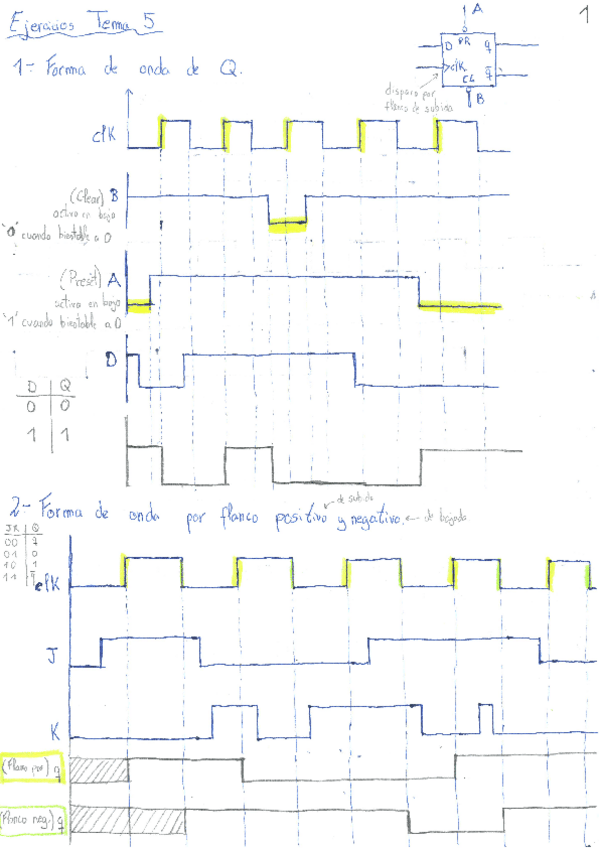 Ejercicios Tema 5
1
A
D PR q
clk
CL q̅
B
disparo por
flanco de subida
1- Forma de onda de Q.
clK
(Clear) B
activo en bajo
"0" cuando biestable a 0
(Preset) A
activo en bajo
"1" cuando biestable a 0
D
D Q
0 0
1 1
de subida
2- Forma de onda por flanco positivo y negativo. ← de bajada
JK Q
00 q
01 0
10 1
11 q̅
clK
J
K
(Flanco pos) q
(Flanco neg.) q